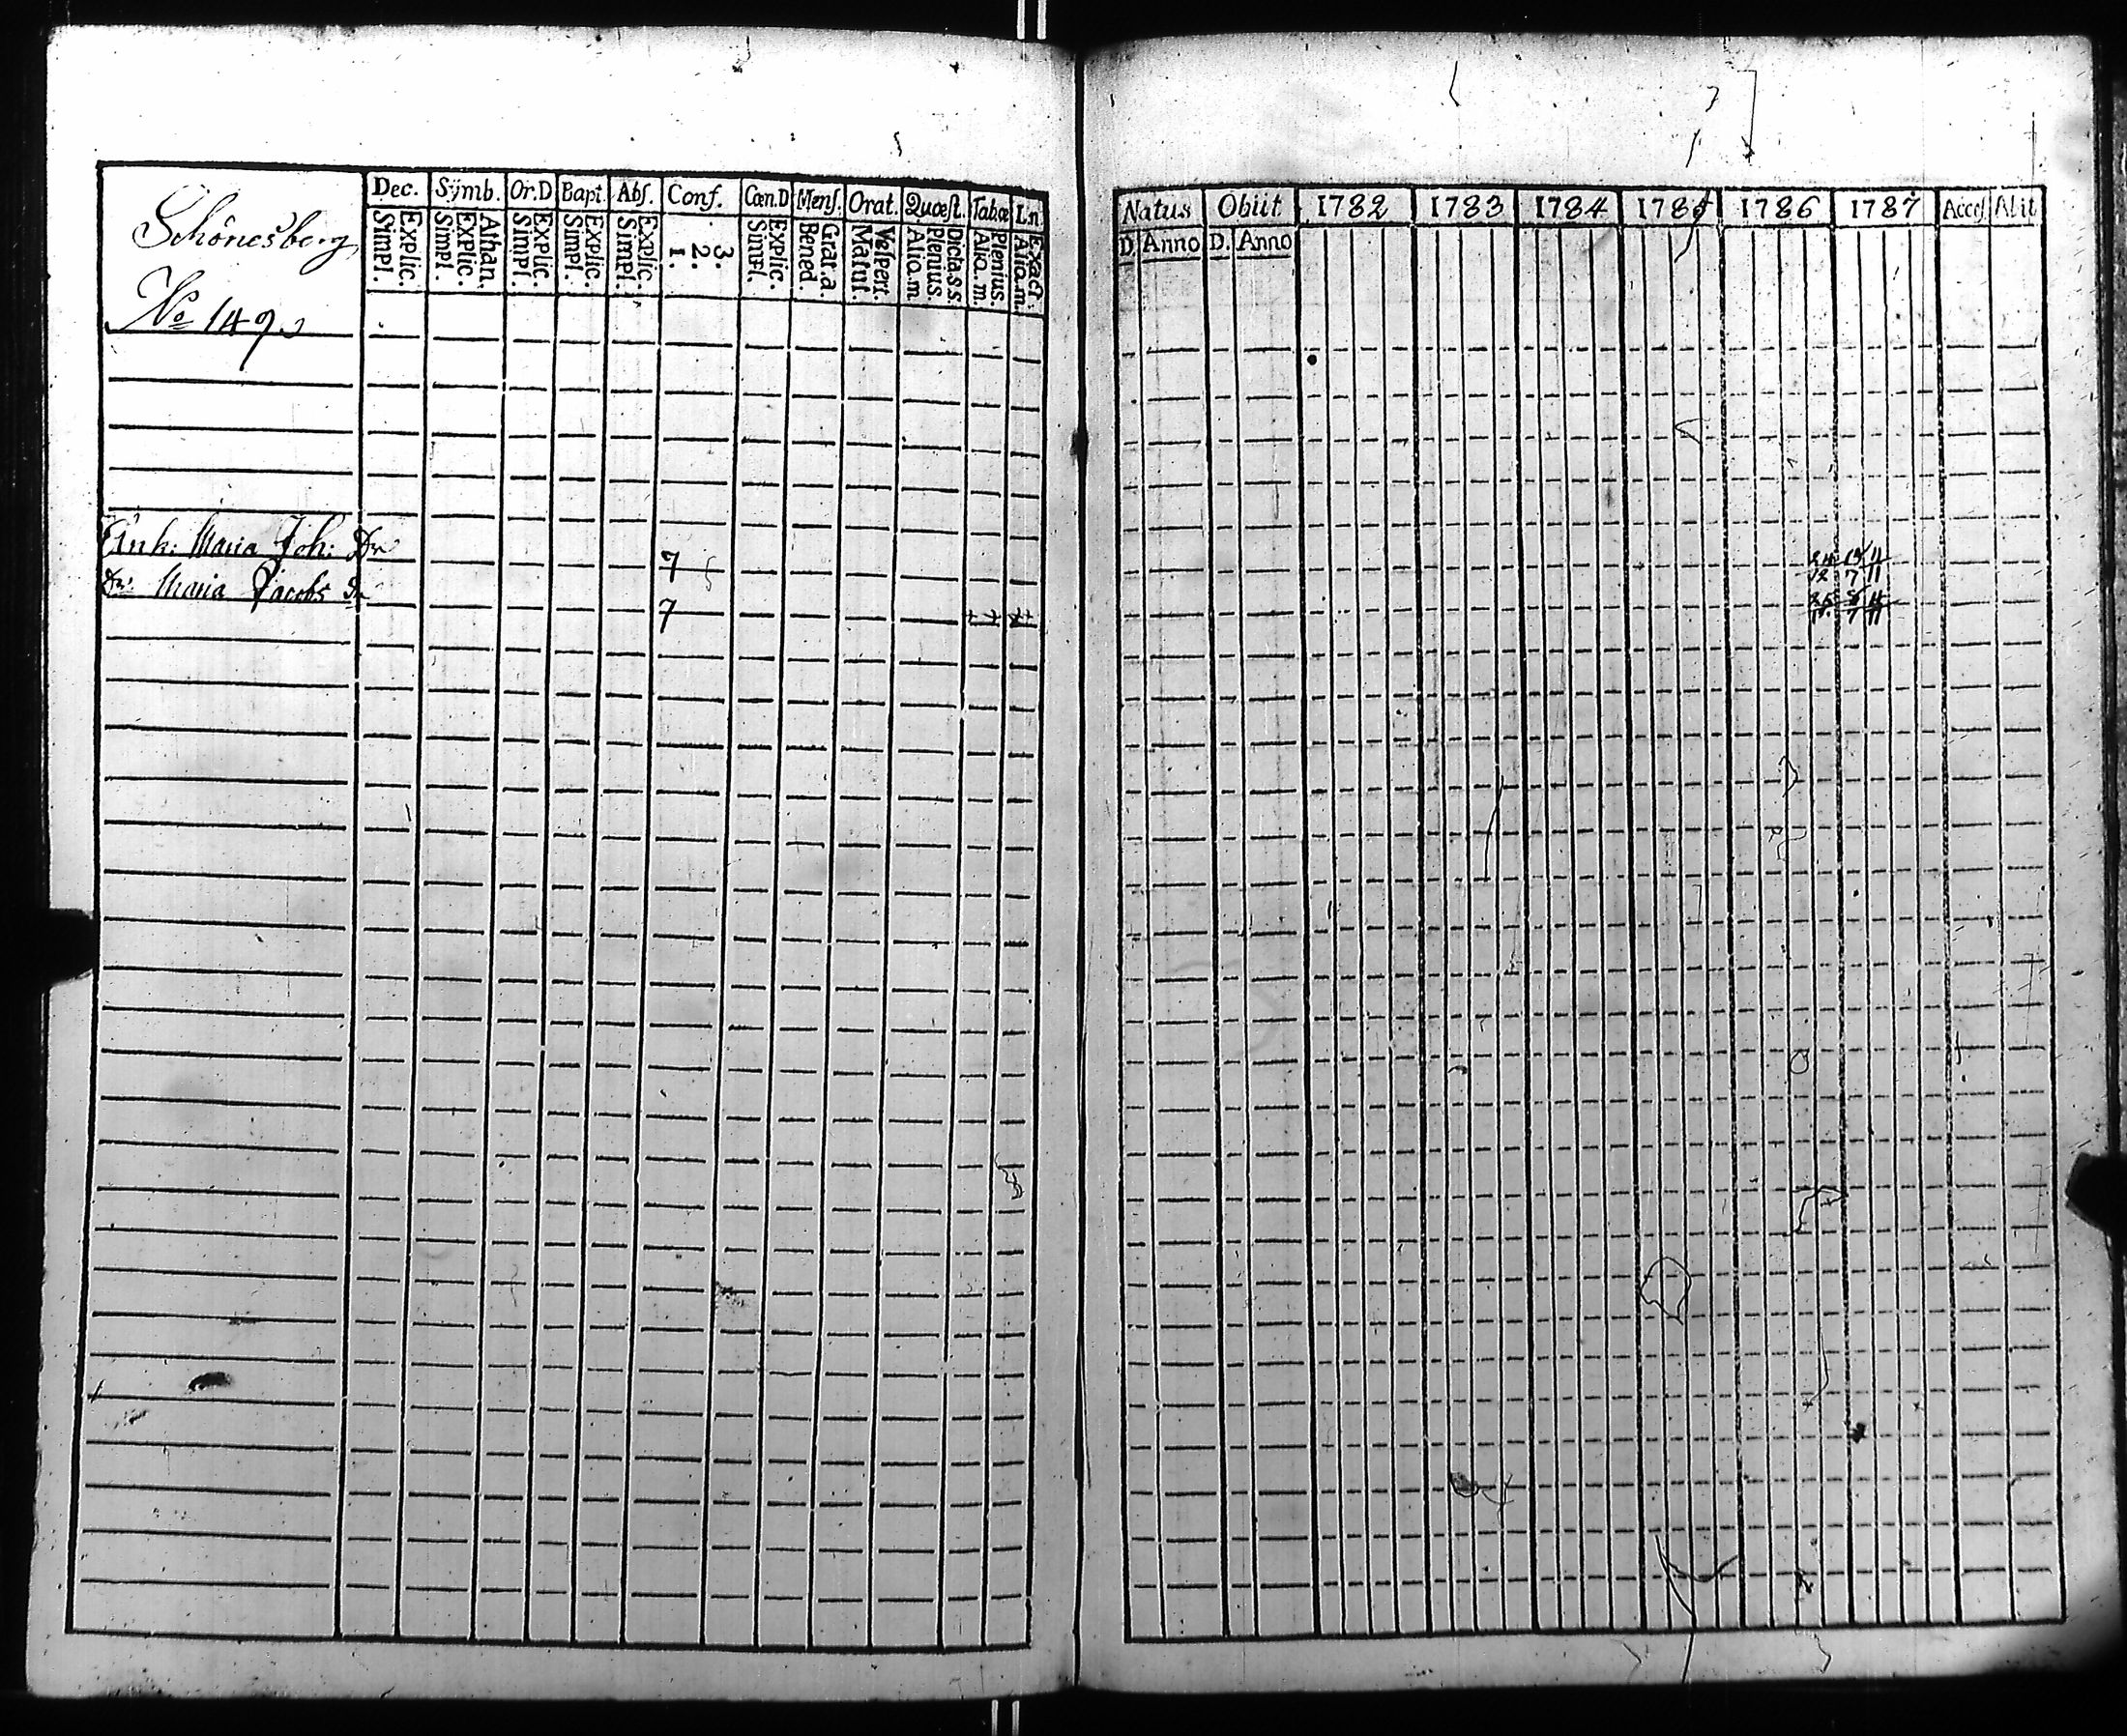 Schönesberg
No 149.
Dec. Symb. Or.D Bapt. Abs. Conf. Cœn.D Mens. Orat. Quæst. Tabœ Ln
Simpl. Explic. Simpl. Explic. Athan. Simpl. Explic. Simpl. Explic. Simpl. Explic. 1. 2. 3. Simpl. Explic. Bened. Grat.a. Matut. Vespert. Alio.m Plenius. Dicta.s.s. Alio.m. Plenius. Alio.m. Exact.
Enk. Maria Joh. Dr 7
Dr Maria Jacobs Dr 7
Natus Obiit 1782 1783 1784 1785 1786 1787 Access Abit
D. Anno D. Anno